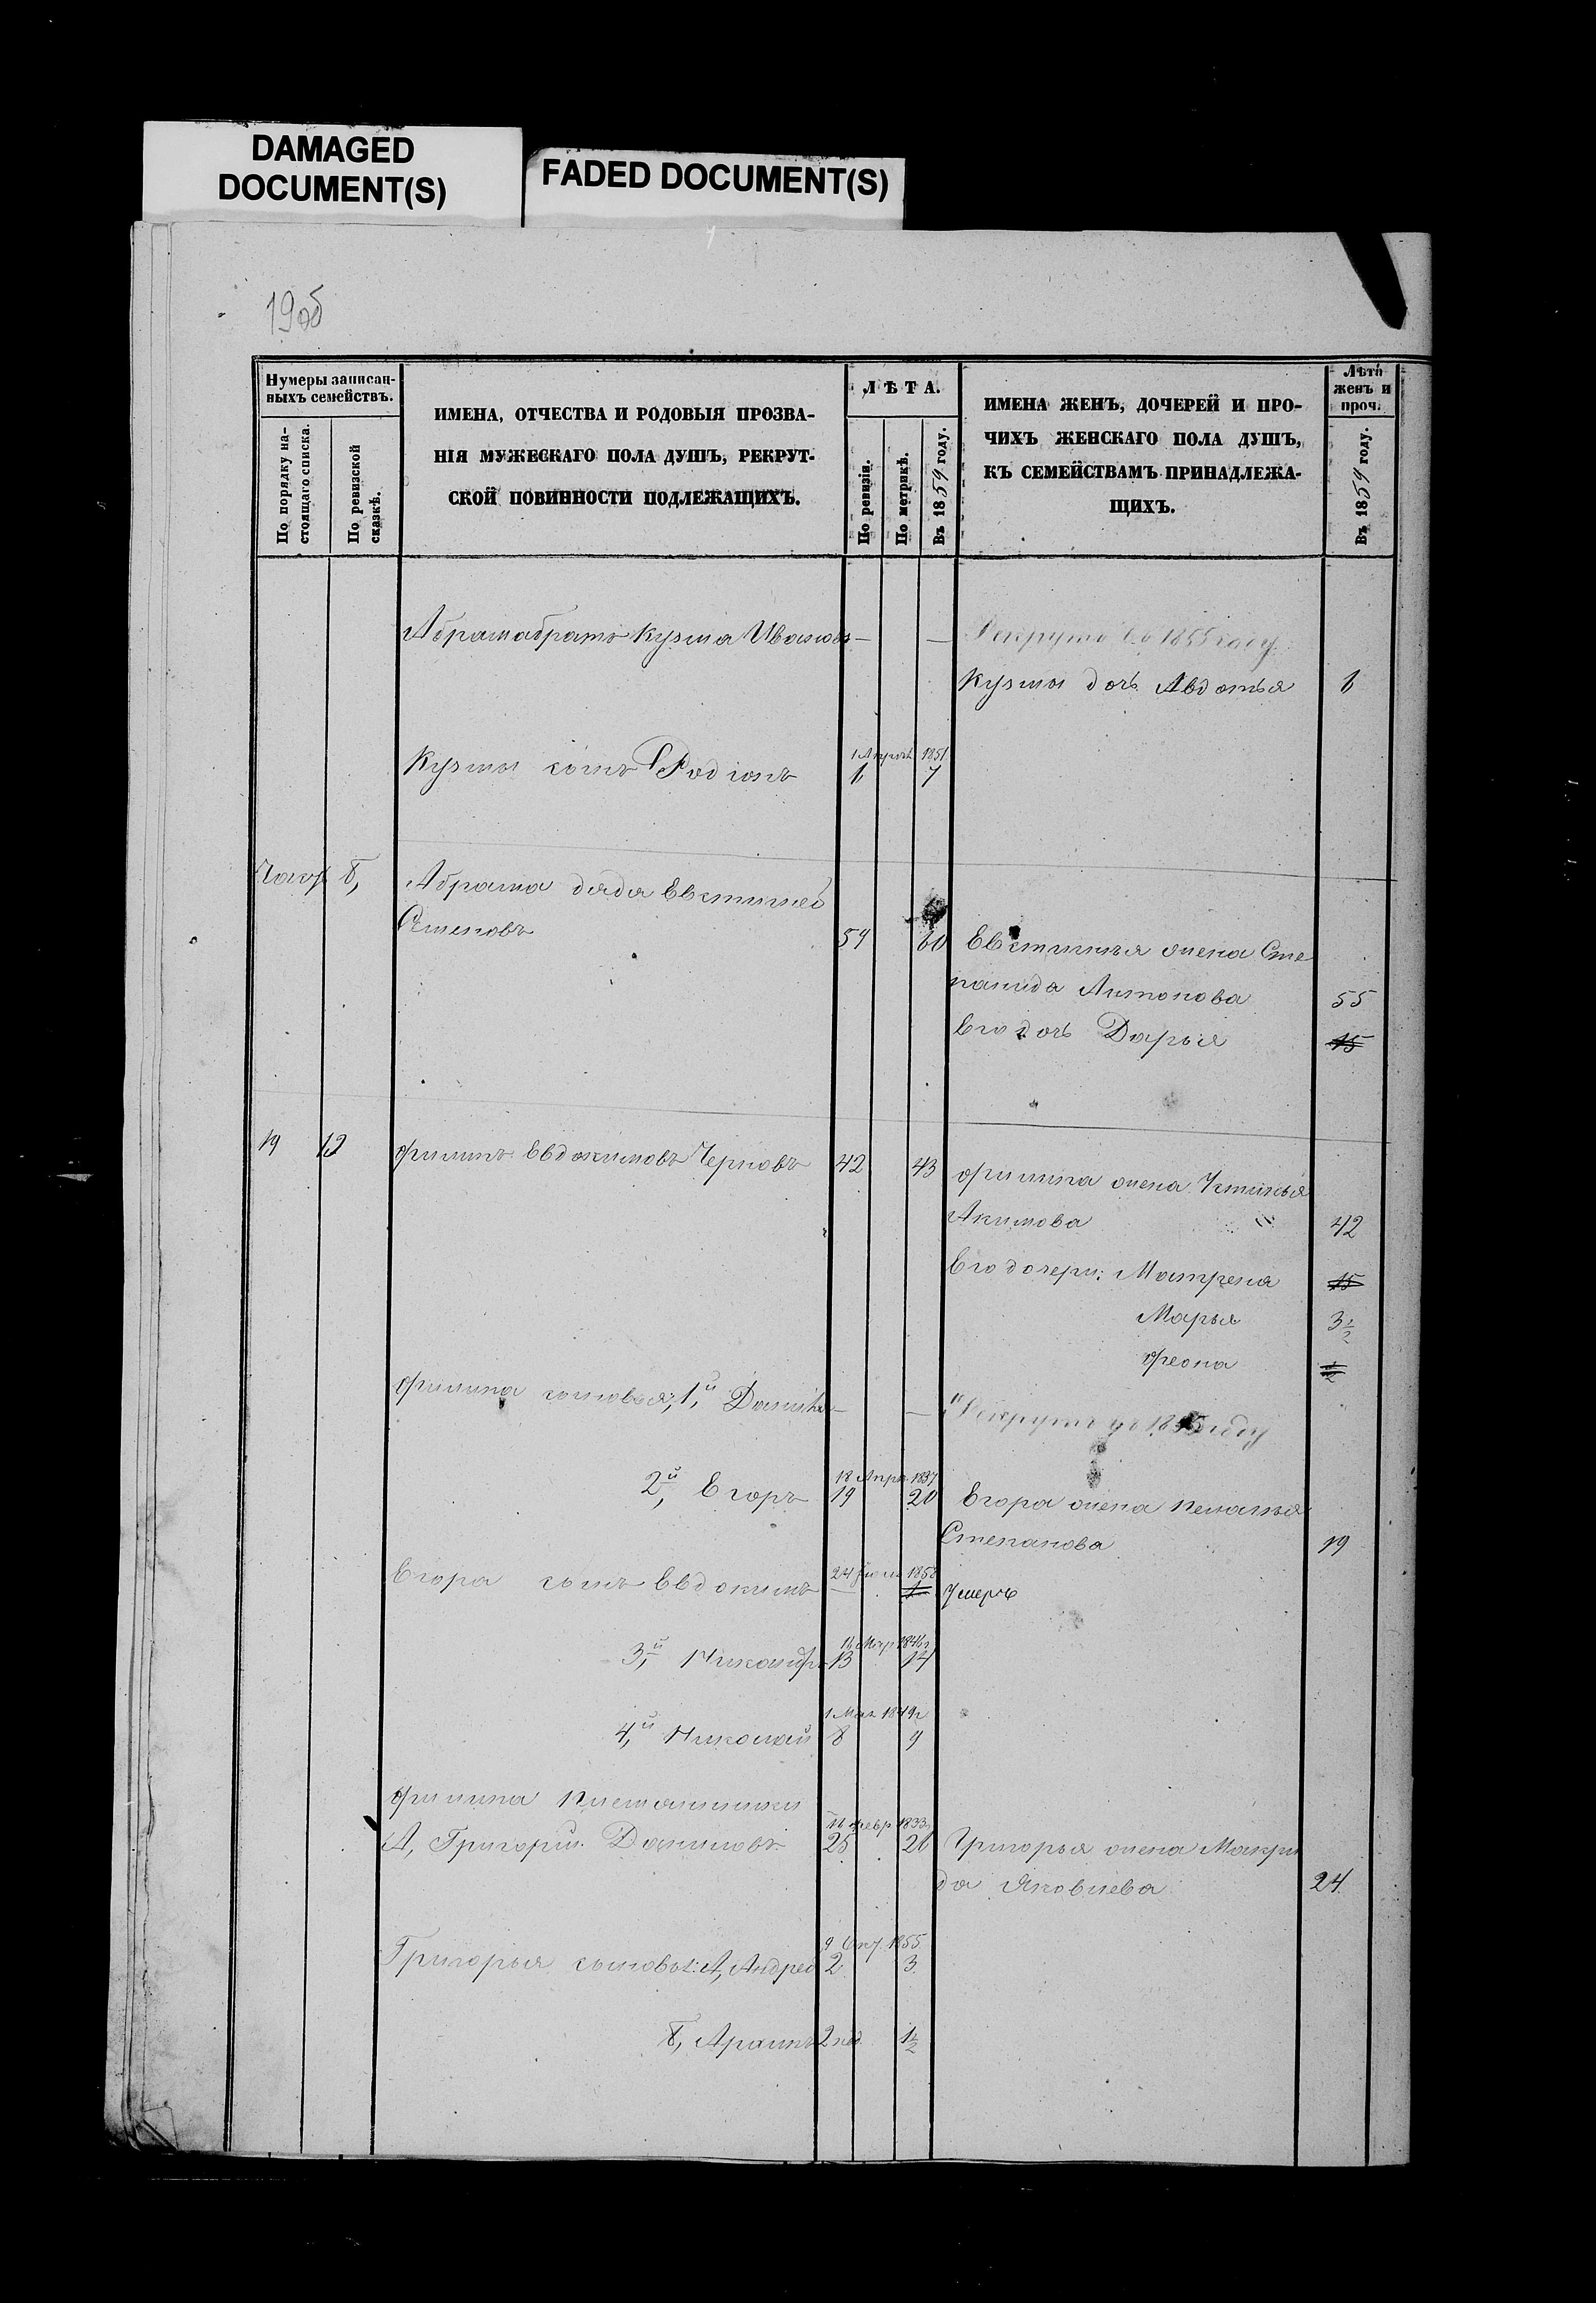 DAMAGED
DOCUMENT(S)
FADED DOCUMENT(S)
19об
Нумеры записан-
ныхъ семействъ.
По порядку на-
стоящаго списка.
По ревизской
сказкѣ.
ИМЕНА, ОТЧЕСТВА И РОДОВЫЯ ПРОЗВА-
НІЯ МУЖЕСКАГО ПОЛА ДУШЪ, РЕКРУТ-
СКОЙ ПОВИННОСТИ ПОДЛЕЖАЩИХЪ.
ЛѢТА.
По ревизіи.
По метрикѣ.
Въ 1859 году.
ИМЕНА ЖЕНЪ, ДОЧЕРЕЙ И ПРО-
ЧИХЪ ЖЕНСКАГО ПОЛА ДУШЪ,
КЪ СЕМЕЙСТВАМЪ ПРИНАДЛЕЖА-
ЩИХЪ.
Лѣта
женъ и
проч.
Въ 1859 году.
Абрама братъ Кузма Ивановъ — — Рекрутъ 1855 году
Кузмы дочь Авдотья
Кузмы сынъ Родіонъ 7
1851
Абрама дядя Евстигней
Семеновъ 59 60 Евстигнѣя жена Сте
панида Антонова 55
Его дочь Дарья 15
19 12 Филипъ Евдокимовъ Черновъ 42 43 Филипа жена Устинья
Акимова 42
Его дочери: Матрена 15
Марья 3 1/2
Феона 1/2
Филипа сыновья; 1й Данила — — Рекрутъ 1855 году
18 Апр. 1837
2й, Егоръ 19 20 Егора жена Пелагья
Степанова 19
24 1858
Егора сынъ Евдокимъ — 1 Умеръ
1846г
3й, 13 14
1849г
4й Николай 8 9
Филипа племянники
февр 1833
А, Григорій Даниловъ 25 26 Григорья жена Макри
да Яковлева 24
9 Окт. 1855
Григорья сыновья: А, Андрей 2 3
Б, 2 нед. 1 1/2